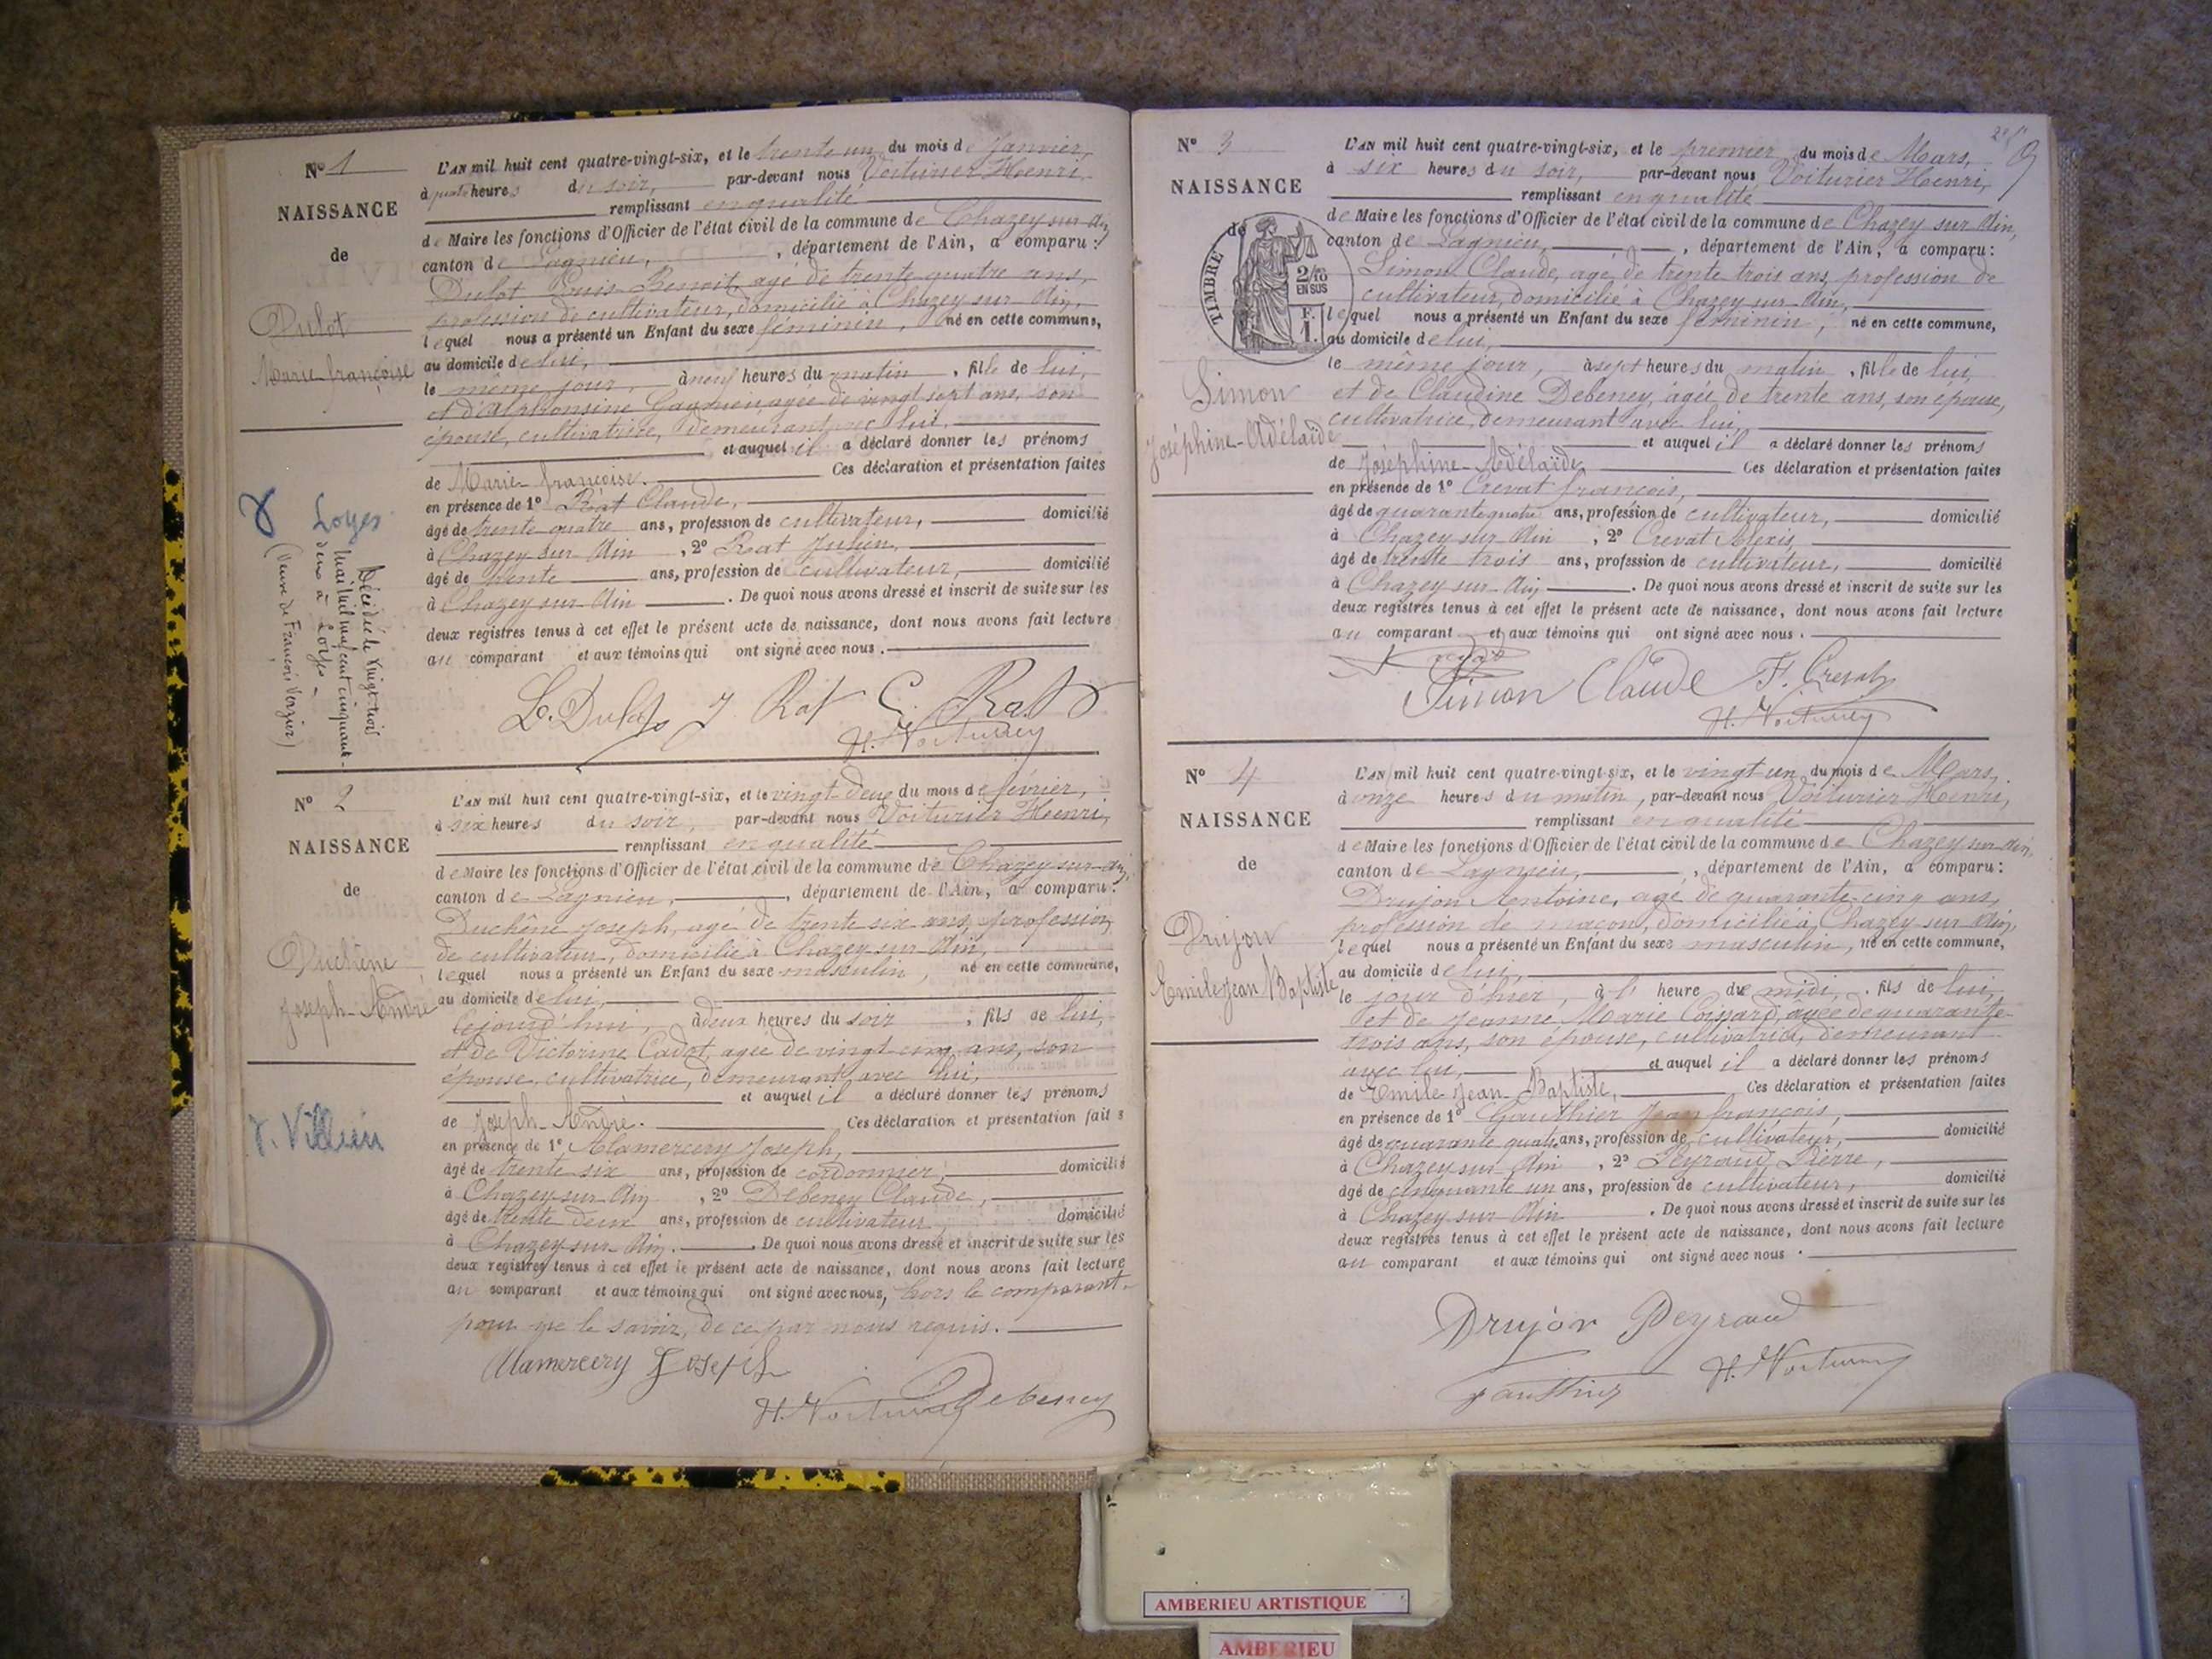 N° 1
NAISSANCE
de
Dulot
Marie-françoise
Loyes
Décédée le vingt-trois
mai mil neuf cent cinquante-
deux à Loyes -
(veuve de François Verzier)
L'AN mil huit cent quatre-vingt-six, et le trente un du mois de Janvier,
à quatre heures du soir, par-devant nous Voiturier Henri
remplissant en qualité
de Maire les fonctions d'Officier de l'état civil de la commune de Chazey-sur-Ain
canton de Lagnieu, , département de l'Ain, a comparu :
Dulot Louis Benoit, agé de trente quatre ans,
profession de cultivateur, domicilié à Chazey sur Ain,
lequel nous a présenté un Enfant du sexe féminin, né en cette commune,
au domicile de lui,
le même jour, à neuf heures du matin, fille de lui,
et d'Alphonsine Gagnieu, agée de vingt sept ans, son
épouse, cultivatrice, demeurant avec lui,
et auquel il a déclaré donner les prénoms
de Marie-françoise. Ces déclaration et présentation faites
en présence de 1° Rat Claude,
âgé de trente quatre ans, profession de cultivateur, domicilié
à Chazey sur Ain, 2° Rat Julien,
âgé de trente ans, profession de cultivateur, domicilié
à Chazey sur Ain. De quoi nous avons dressé et inscrit de suite sur les
deux registres tenus à cet effet le présent acte de naissance, dont nous avons fait lecture
au comparant et aux témoins qui ont signé avec nous.
L. Dulot J Rat C. Rat
H. Voiturier
N° 2
NAISSANCE
de
Duchêne
Joseph-André
V. Villieu
L'AN mil huit cent quatre-vingt-six, et le vingt-deux du mois de février,
à six heures du soir, par-devant nous Voiturier Henri,
remplissant en qualité
de Maire les fonctions d'Officier de l'état civil de la commune de Chazey-sur-Ain,
canton de Lagnieu, , département de l'Ain, a comparu :
Duchêne Joseph, agé de trente six ans, profession
de cultivateur, domicilié à Chazey-sur-Ain,
lequel nous a présenté un Enfant du sexe masculin, né en cette commune,
au domicile de lui,
Cejourd'hui, à deux heures du soir, fils de lui,
et de Victorine Cadot, agée de vingt cinq ans, son
épouse, cultivatrice, demeurant avec lui,
et auquel il a déclaré donner les prénoms
de Joseph-André. Ces déclaration et présentation faites
en présence de 1° Mamercery Joseph,
âgé de trente six ans, profession de cordonnier, domicilié
à Chazey-sur-Ain, 2° Debeney Claude,
âgé de trente deux ans, profession de cultivateur, domicilié
à Chazey-sur-Ain. De quoi nous avons dressé et inscrit de suite sur les
deux registres tenus à cet effet le présent acte de naissance, dont nous avons fait lecture
au comparant et aux témoins qui ont signé avec nous, hors le comparant
pour ne le savoir, de ce par nous requis.
Mamercery Joseph
H. Voiturier Debeney
N° 3
NAISSANCE
de
TIMBRE
2/10
EN SUS
F.
1.
Simon
Joséphine-Adélaïde
L'AN mil huit cent quatre-vingt-six, et le premier du mois de Mars,
à six heures du soir, par-devant nous Voiturier Henri,
remplissant en qualité
de Maire les fonctions d'Officier de l'état civil de la commune de Chazey sur Ain,
canton de Lagnieu, , département de l'Ain, a comparu :
Simon Claude, agé de trente trois ans, profession de
cultivateur, domicilié à Chazey-sur-Ain,
lequel nous a présenté un Enfant du sexe féminin, né en cette commune,
au domicile de lui,
le même jour, à sept heures du matin, fille de lui,
et de Claudine Debeney, agée de trente ans, son épouse,
cultivatrice, demeurant avec lui,
et auquel il a déclaré donner les prénoms
de Joséphine-Adélaïde Ces déclaration et présentation faites
en présence de 1° Crevat françois,
âgé de quarante quatre ans, profession de cultivateur, domicilié
à Chazey sur Ain, 2° Crevat Alexis,
âgé de trente trois ans, profession de cultivateur, domicilié
à Chazey sur Ain. De quoi nous avons dressé et inscrit de suite sur les
deux registres tenus à cet effet le présent acte de naissance, dont nous avons fait lecture
au comparant et aux témoins qui ont signé avec nous.
Simon Claude F. Crevat
H. Voiturier
N° 4
NAISSANCE
de
Drujon
Emile Jean Baptiste
L'AN mil huit cent quatre-vingt-six, et le vingt un du mois de Mars,
à onze heures du matin, par-devant nous Voiturier Henri,
remplissant en qualité
de Maire les fonctions d'Officier de l'état civil de la commune de Chazey sur Ain,
canton de Lagnieu, , département de l'Ain, a comparu :
Drujon Antoine, agé de quarante-cinq ans,
profession de maçon, domicilié à Chazey sur Ain,
lequel nous a présenté un Enfant du sexe masculin, né en cette commune,
au domicile de lui,
le jour d'hier, à l' heure de midi, fils de lui,
et de Jeanne Marie Coignard, agée de quarante-
trois ans, son épouse, cultivatrice, demeurant
avec lui, et auquel il a déclaré donner les prénoms
de Emile-Jean-Baptiste, Ces déclaration et présentation faites
en présence de 1° Gauthier Jean françois,
âgé de quarante quatre ans, profession de cultivateur, domicilié
à Chazey sur Ain, 2° Peyraud Pierre,
âgé de cinquante un ans, profession de cultivateur, domicilié
à Chazey sur Ain. De quoi nous avons dressé et inscrit de suite sur les
deux registres tenus à cet effet le présent acte de naissance, dont nous avons fait lecture
au comparant et aux témoins qui ont signé avec nous.
Drujon Peyraud
Gauthier H. Voiturier
AMBERIEU ARTISTIQUE
AMBERIEU